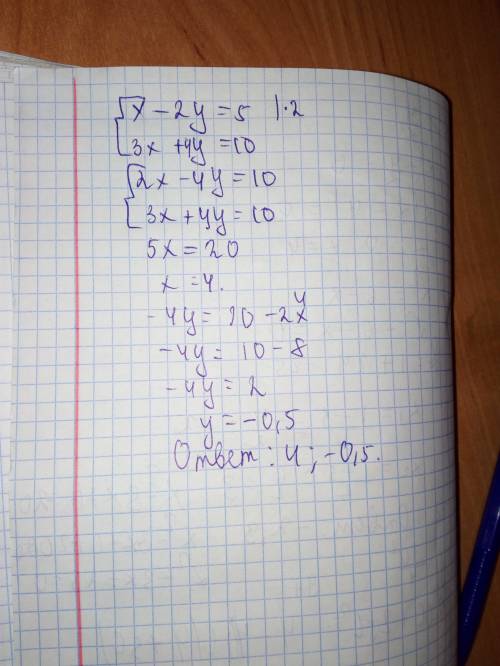 x - 2y = 5 | · 2
3x + 4y = 10
2x - 4y = 10
3x + 4y = 10
5x = 20
x = 4.
-4y = 10 - 2x 4
-4y = 10 - 8
-4y = 2
y = -0,5
Ответ: 4; -0,5.